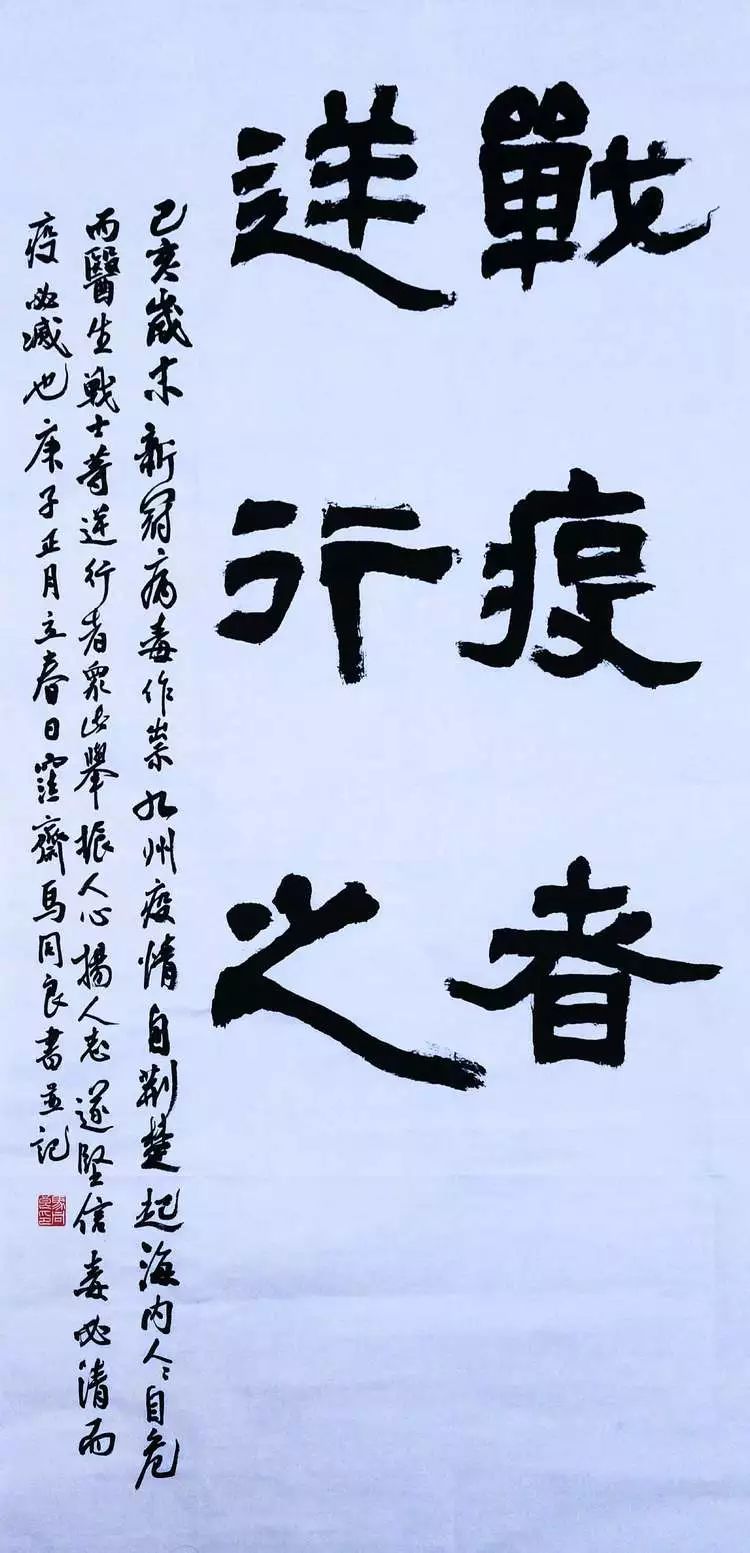 戰疫者
逆行之
己亥歲末新冠病毒作祟九州疫情自荆楚起海内人人自危
而醫生戰士等逆行者眾此舉振人心揚人志遂堅信毒必清而
疫必滅也庚子正月立春日窪齋馬同良書並記